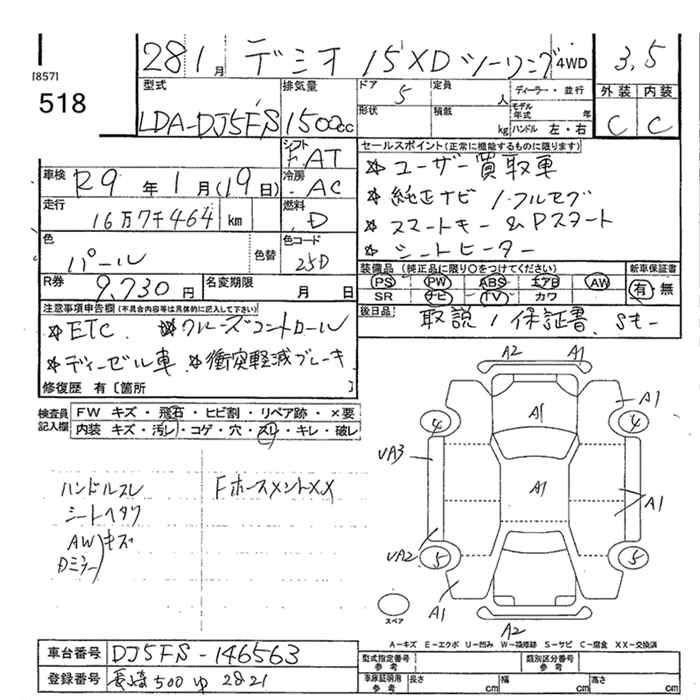 [857]
518
28 1月 デミオ 15 XD ツーリング 4WD
3.5
型式 LDA-DJ5FS
排気量 1500cc
ドア 5
形状
定員 人
積載 kg
ディーラー・並行
モデル年式 年
ハンドル 左・右
外装 内装
C C
シフト FAT
車検 R9 年 1 月(19日)
冷房 AC
走行 16万7千464 km
燃料 D
色 パール
色替
色コード 25D
R券 9,730 円
名変期限 月 日
セールスポイント(正常に機能するものに限ります)
☆ユーザー買取車
☆純正ナビ/フルセグ
☆スマートキー&Pスタート
☆シートヒーター
装備品(純正品に限り○をつけてください)
新車保証書
PS PW ABS エアB AW
SR ナビ TV カワ
有・無
後日品 取説/保証書、Sキー
注意事項申告欄(不具合内容等は具体的に記入して下さい)
☆ETC ☆クルーズコントロール
☆ディーゼル車 ☆衝突軽減ブレーキ
修復歴 有〔箇所 〕
検査員記入欄
FW キズ・飛石・ヒビ割・リペア跡・×要
内装 キズ・汚レ・コゲ・穴・スレ・キレ・破レ
ハンドルスレ
シートヘタリ
AW キズ
Dミラー
FホースメントXX
A2 A1
A1 A1
4 4
UA3
A1 A1
UA2
5 5
スペア
A1
A2
A-キズ E-エクボ U-凹み W-補修跡 S-サビ C-腐食 XX-交換済
車台番号 DJ5FS-146563
登録番号 長崎 500 ゆ 2821
型式指定番号 参考
類別区分番号 参考
車庫証明用 参考
長さ cm 幅 cm 高さ cm